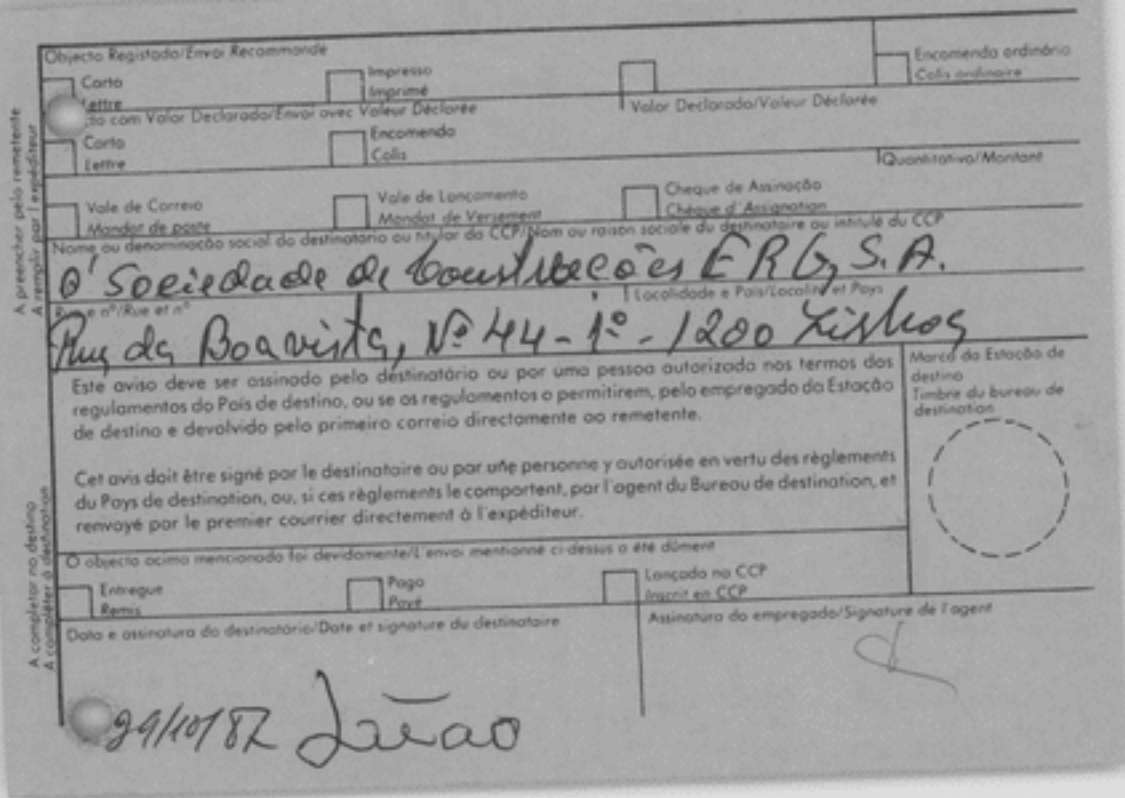 Objecto Registado/Envoi Recommandé
Encomenda ordinária
Colis ordinaire
Carta
Lettre
Impresso
Imprimé
com Valor Declarado/Envoi avec Valeur Déclarée
Valor Declarado/Valeur Déclarée
Carta
Lettre
Encomenda
Colis
Quantitativo/Montant
Vale de Correio
Mandat de poste
Vale de Lançamento
Mandat de Versement
Cheque de Assinação
Chèque d'Assignation
Nome ou denominação social do destinatário ou titular da CCP/Nom ou raison sociale du destinataire ou intitulé du CCP
Sociedade de Construções ERG, S.A.
nº/Rue et nº
Localidade e País/Localité et Pays
Rua da Boavista, Nº 44-1º-1200 Lisboa
Este aviso deve ser assinado pelo destinatário ou por uma pessoa autorizada nos termos dos
regulamentos do País de destino, ou se os regulamentos o permitirem, pelo empregado da Estação
de destino e devolvido pelo primeiro correio directamente ao remetente.
Cet avis doit être signé par le destinataire ou par une personne y autorisée en vertu des règlements
du Pays de destination, ou, si ces règlements le comportent, par l'agent du Bureau de destination, et
renvoyé par le premier courrier directement à l'expéditeur.
Marca da Estação de
destino
Timbre du bureau de
destination
O objecto acima mencionado foi devidamente/L'envoi mentionné ci-dessus a été dûment
Entregue
Remis
Pago
Payé
Lançado na CCP
Inscrit en CCP
Data e assinatura do destinatário/Date et signature du destinataire
Assinatura do empregado/Signature de l'agent
29/10/87
A preencher pelo remetente
A remplir par l'expéditeur
A completar no destino
A compléter à destination